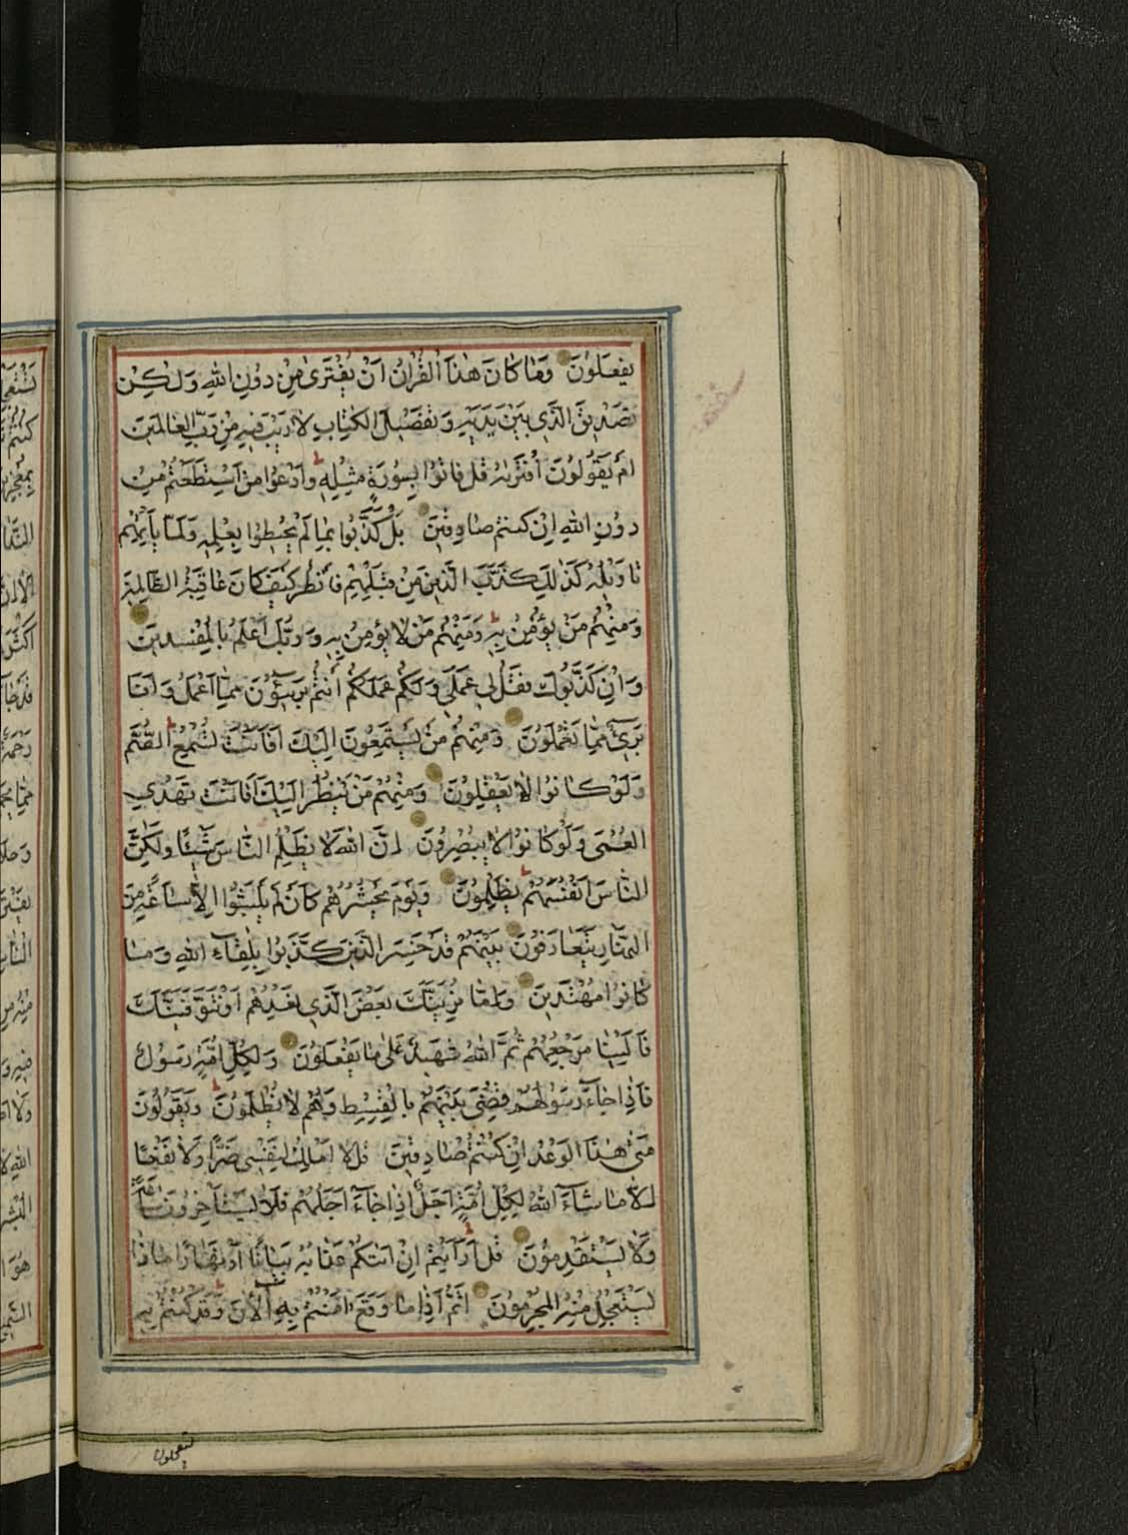 يَفْعَلُونَ وَمَا كَانَ هٰذَا الْقُرْاٰنُ اَنْ يُفْتَرٰى مِنْ دُونِ اللّٰهِ وَلٰكِنْ
تَصْدٖيقَ الَّذٖى بَيْنَ يَدَيْهِ وَتَفْصٖيلَ الْكِتَابِ لَا رَيْبَ فٖيهِ مِنْ رَبِّ الْعَالَمٖينَ
اَمْ يَقُولُونَ افْتَرٰيهُ قُلْ فَاتُوا بِسُورَةٍ مِثْلِهٖ وَادْعُوا مَنْ اسْتَطَعْتُمْ مِنْ
دُونِ اللّٰهِ اِنْ كُنْتُمْ صَادِقٖينَ بَلْ كَذَّبُوا بِمَا لَمْ يُحٖيطُوا بِعِلْمِهٖ وَلَمَّا يَاْتِهِمْ
تَاْوٖيلُهُ كَذٰلِكَ كَذَّبَ الَّذٖينَ مِنْ قَبْلِهِمْ فَانْظُرْ كَيْفَ كَانَ عَاقِبَةُ الظَّالِمٖينَ
وَمِنْهُمْ مَنْ يُؤْمِنُ بِهٖ وَمِنْهُمْ مَنْ لَا يُؤْمِنُ بِهٖ وَرَبُّكَ اَعْلَمُ بِالْمُفْسِدٖينَ
وَاِنْ كَذَّبُوكَ فَقُلْ لٖى عَمَلٖى وَلَكُمْ عَمَلُكُمْ اَنْتُمْ بَرٖيؤُنَ مِمَّا اَعْمَلُ وَاَنَا
بَرٖىءٌ مِمَّا تَعْمَلُونَ وَمِنْهُمْ مَنْ يَسْتَمِعُونَ اِلَيْكَ اَفَاَنْتَ تُسْمِعُ الصُّمَّ
وَلَوْ كَانُوا لَا يَعْقِلُونَ وَمِنْهُمْ مَنْ يَنْظُرُ اِلَيْكَ اَفَاَنْتَ تَهْدِى
الْعُمْىَ وَلَوْ كَانُوا لَا يُبْصِرُونَ اِنَّ اللّٰهَ لَا يَظْلِمُ النَّاسَ شَيْئًا وَلٰكِنَّ
النَّاسَ اَنْفُسَهُمْ يَظْلِمُونَ وَيَوْمَ يَحْشُرُهُمْ كَاَنْ لَمْ يَلْبَثُوا اِلَّا سَاعَةً مِنَ
النَّهَارِ يَتَعَارَفُونَ بَيْنَهُمْ قَدْ خَسِرَ الَّذٖينَ كَذَّبُوا بِلِقَاءِ اللّٰهِ وَمَا
كَانُوا مُهْتَدٖينَ وَاِمَّا نُرِيَنَّكَ بَعْضَ الَّذٖى نَعِدُهُمْ اَوْ نَتَوَفَّيَنَّكَ
فَاِلَيْنَا مَرْجِعُهُمْ ثُمَّ اللّٰهُ شَهٖيدٌ عَلٰى مَا يَفْعَلُونَ وَلِكُلِّ اُمَّةٍ رَسُولٌ
فَاِذَا جَاءَ رَسُولُهُمْ قُضِىَ بَيْنَهُمْ بِالْقِسْطِ وَهُمْ لَا يُظْلَمُونَ وَيَقُولُونَ
مَتٰى هٰذَا الْوَعْدُ اِنْ كُنْتُمْ صَادِقٖينَ قُلْ لَا اَمْلِكُ لِنَفْسٖى ضَرًّا وَلَا نَفْعًا
اِلَّا مَا شَاءَ اللّٰهُ لِكُلِّ اُمَّةٍ اَجَلٌ اِذَا جَاءَ اَجَلُهُمْ فَلَا يَسْتَاْخِرُونَ سَاعَةً
وَلَا يَسْتَقْدِمُونَ قُلْ اَرَاَيْتُمْ اِنْ اَتٰيكُمْ عَذَابُهُ بَيَاتًا اَوْ نَهَارًا مَاذَا
يَسْتَعْجِلُ مِنْهُ الْمُجْرِمُونَ اَثُمَّ اِذَا مَا وَقَعَ اٰمَنْتُمْ بِهٖ اٰلْاٰنَ وَقَدْ كُنْتُمْ بِهٖ
تستعجلون